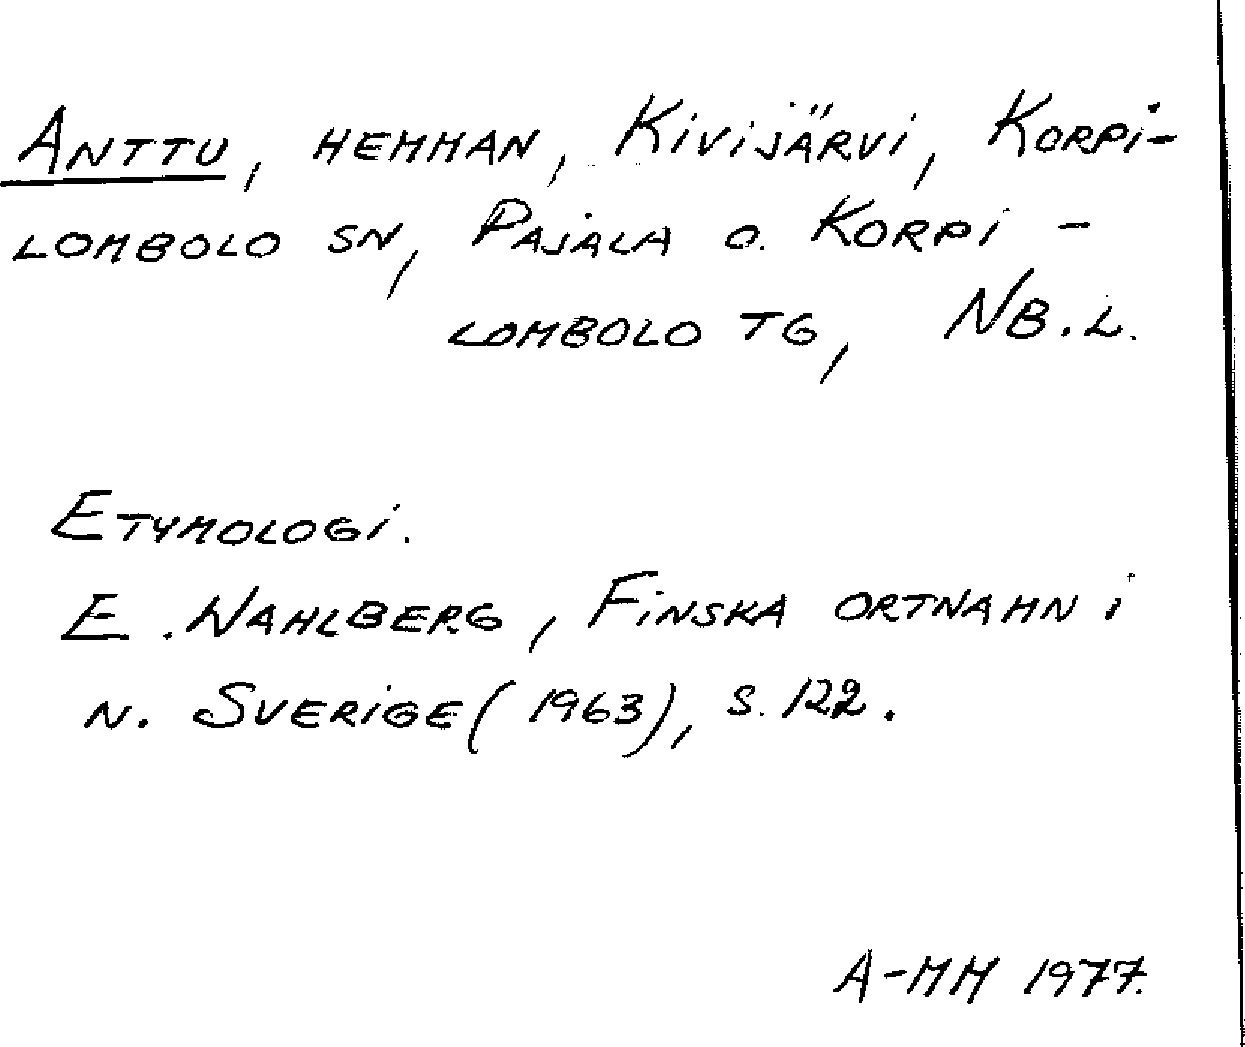 ANTTU, HEMMAN, KIVIJÄRVI, KORPI-
LOMBOLO SN, PAJALA O. KORPI-
LOMBOLO TG, NB.L.
ETYMOLOGI.
E. WAHLBERG, FINSKA ORTNAMN I
N. SVERIGE (1963), S. 122.
A-MM 1977.